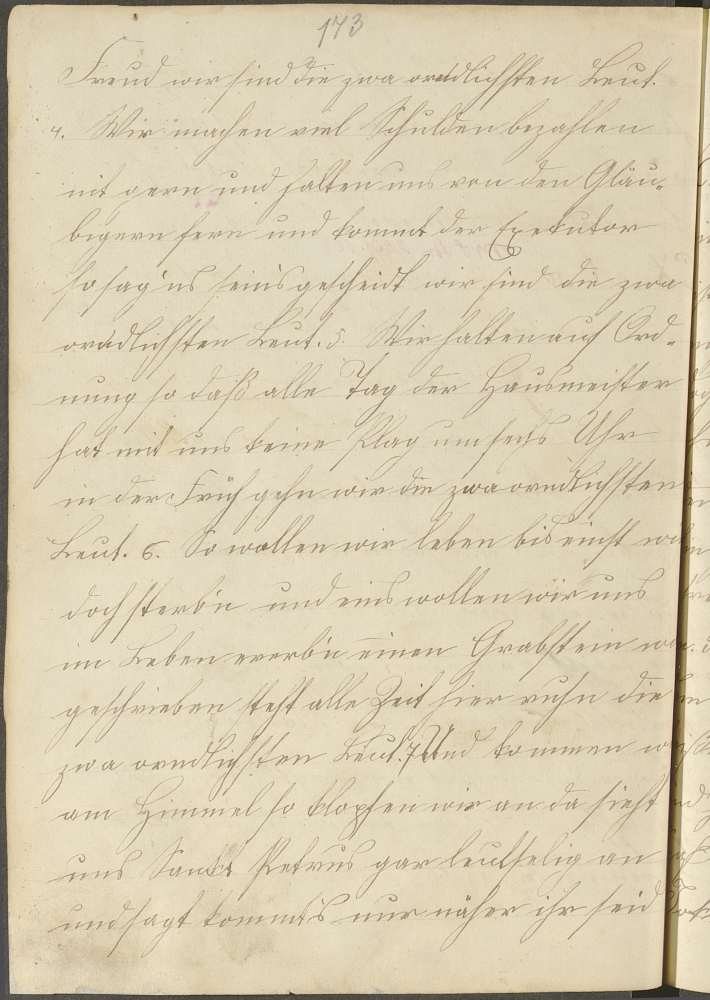 173
Freud wir sind die zwa orndlichsten Leut.
4. Wir machen viel Schulden bezahlen
nit gern und halten uns von den Gläu-
bigern fern und kommt der Exekutor
so sag'ns seins gescheidt wir sind die zwa
orndlichsten Leut. 5. Wir halten auf Ord-
nung so daß alle Tag der Hausmeister
hat mit uns keine Plag um sechs Uhr
in der Früh gehn wir die zwa orndlichsten
Leut. 6. So wollen wir leben bis einst wir
doch sterb'n und eins wollen wir uns
im Leben ererb'n einen Grabstein wo
geschrieben steht alle Zeit hier ruhn die
zwa orndlichsten Leut. 7 Und kommen wir
am Himmel so klopfen wir an da sieht
uns Sankt Petrus gar leutselig an
und sagt kommts nur näher ihr seid